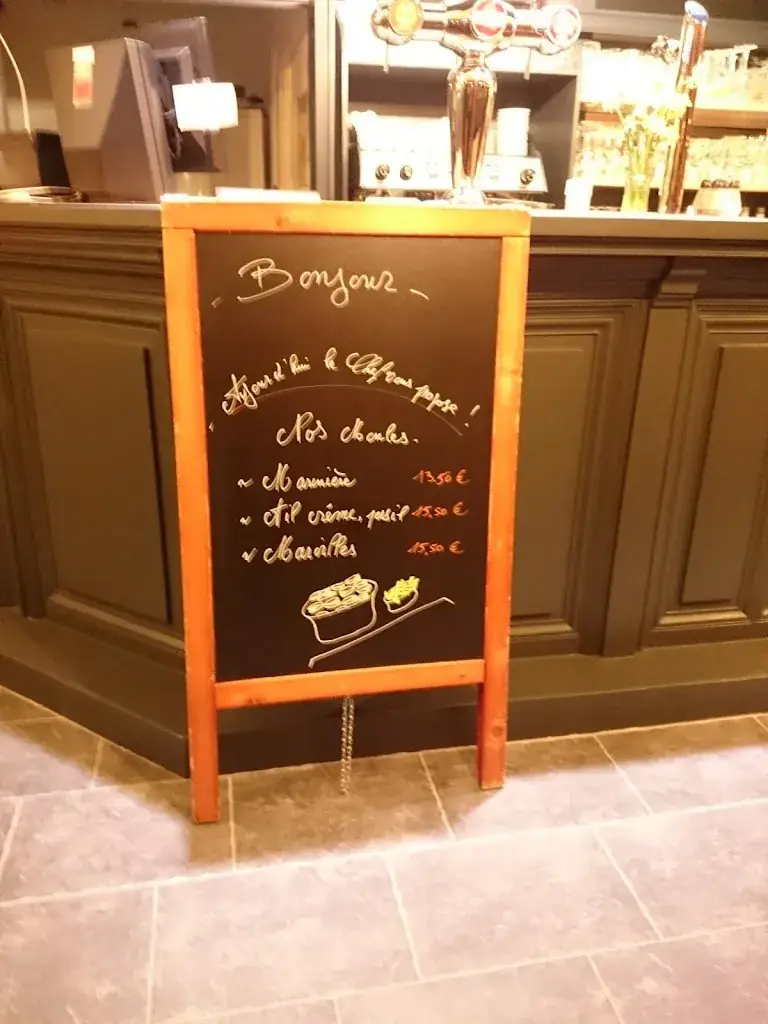 Bonjour
Aujourd'hui le Chef vous propose !
Nos Moules.
Marinière 13,50 €
Ail crême, persil 15,50 €
Maroilles 15,50 €